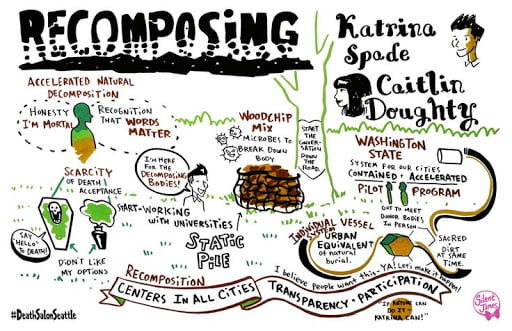 RECOMPOSING
Katrina
Spade
Caitlin
Doughty
ACCELERATED NATURAL
DECOMPOSITION
HONESTY
I'M MORTAL
RECOGNITION
THAT WORDS
MATTER
SCARCITY
OF DEATH
ACCEPTANCE
SAY
"HELLO"
TO DEATH!
DIDN'T LIKE
MY OPTIONS
I'M HERE
FOR THE
DECOMPOSING
BODIES!
START-WORKING
WITH UNIVERSITIES
WOODCHIP
MIX
MICROBES TO
BREAK DOWN
BODY
STATIC
PILE
START
THE
CONVER-
SATION
DOWN
THE
ROAD
WASHINGTON
STATE
SYSTEM FOR OUR CITIES
CONTAINED + ACCELERATED
PILOT PROGRAM
GOT TO MEET
DONOR BODIES
IN PERSON
SACRED
+
DIRT AT
SAME TIME.
INDIVIDUAL VESSEL
SYSTEM
URBAN
EQUIVALENT
of natural
burial.
RECOMPOSITION
CENTERS IN ALL CITIES
I believe people want this. YA! Let's make it happen!
TRANSPARENCY + PARTICIPATION
"IF ANYONE CAN
DO IT-
KATRINA CAN!"
Silent
James
#DeathSalonSeattle